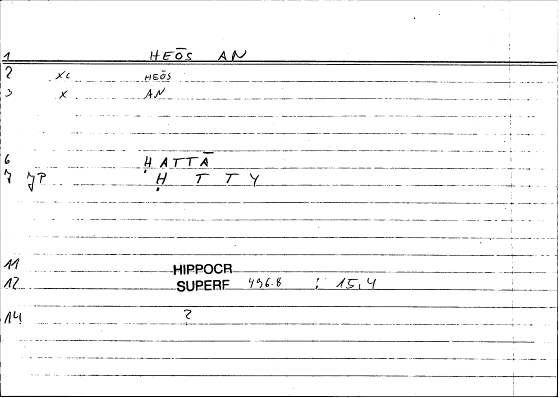 1 HEŌS AN
2 XC HEŌS
3 X AN
6 ḤATTĀ
7 JP Ḥ T T Y
11 HIPPOCR
12 SUPERF 496.8 : 15,4
14 ?